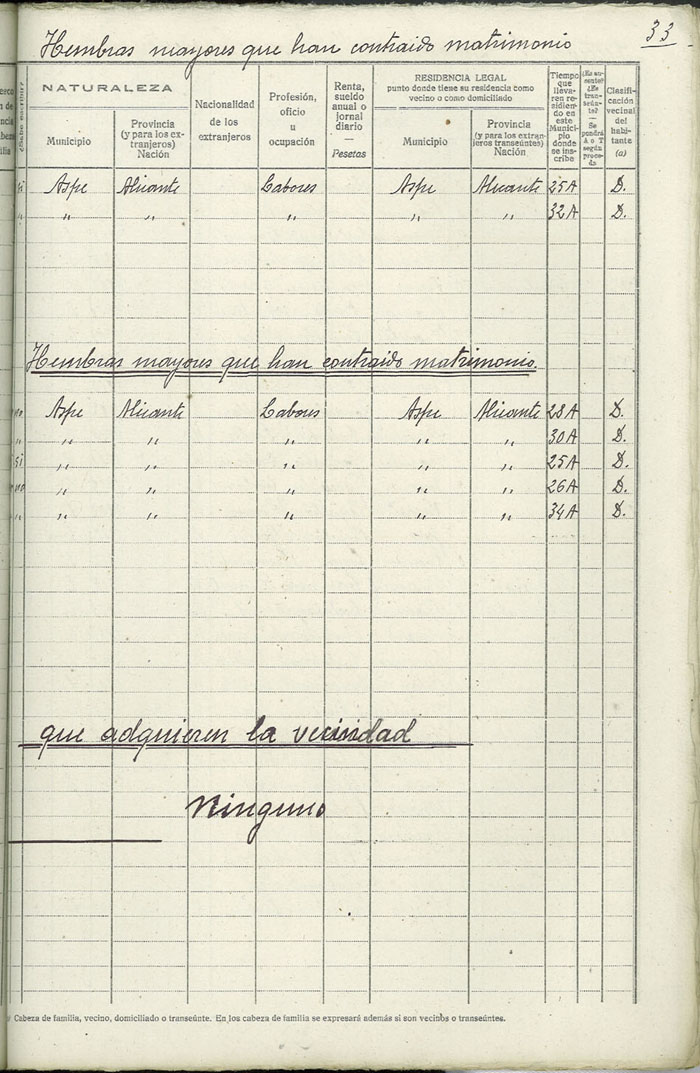 33
Hembras mayores que han contraido matrimonio
NATURALEZA
Municipio
Provincia (y para los extranjeros) Nación
Nacionalidad de los extranjeros
Profesión, oficio u ocupación
Renta, sueldo anual o jornal diario — Pesetas
RESIDENCIA LEGAL
punto donde tiene su residencia como vecino o como domiciliado
Municipio
Provincia (y para los extranjeros transeúntes) Nación
Tiempo que llevaren residiendo en este Municipio donde se inscribe
¿Es ausente? ¿Es transeúnte? — Se pondrá A o T según proceda
Clasificación vecinal del habitante (a)
si Aspe Alicante Labores Aspe Alicante 25A D.
" " " " " " 32A D.
Hembras mayores que han contraido matrimonio.
no Aspe Alicante Labores Aspe Alicante 28A D.
" " " " " " 30A D.
si " " " " " 25A D.
no " " " " " 26A D.
" " " " " " 34A D.
que adquieren la vecindad
Ninguno
Cabeza de familia, vecino, domiciliado o transeúnte. En los cabeza de familia se expresará además si son vecinos o transeúntes.